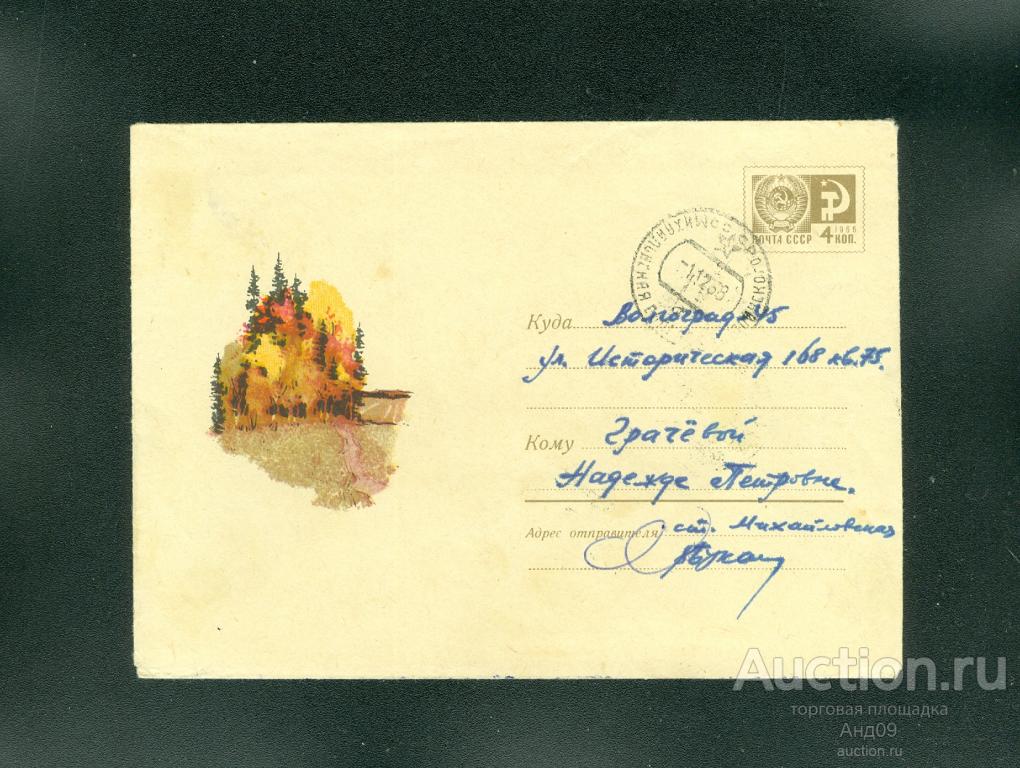 ПОЧТА СССР 4 КОП.
1966
-1.12.68
Куда Волгоград-45
ул. Историческая 168 кв. 75.
Кому Грачёвой
Надежде Петровне.
Адрес отправителя ст. Михайловская
Auction.ru
торговая площадка
Анд09
auction.ru